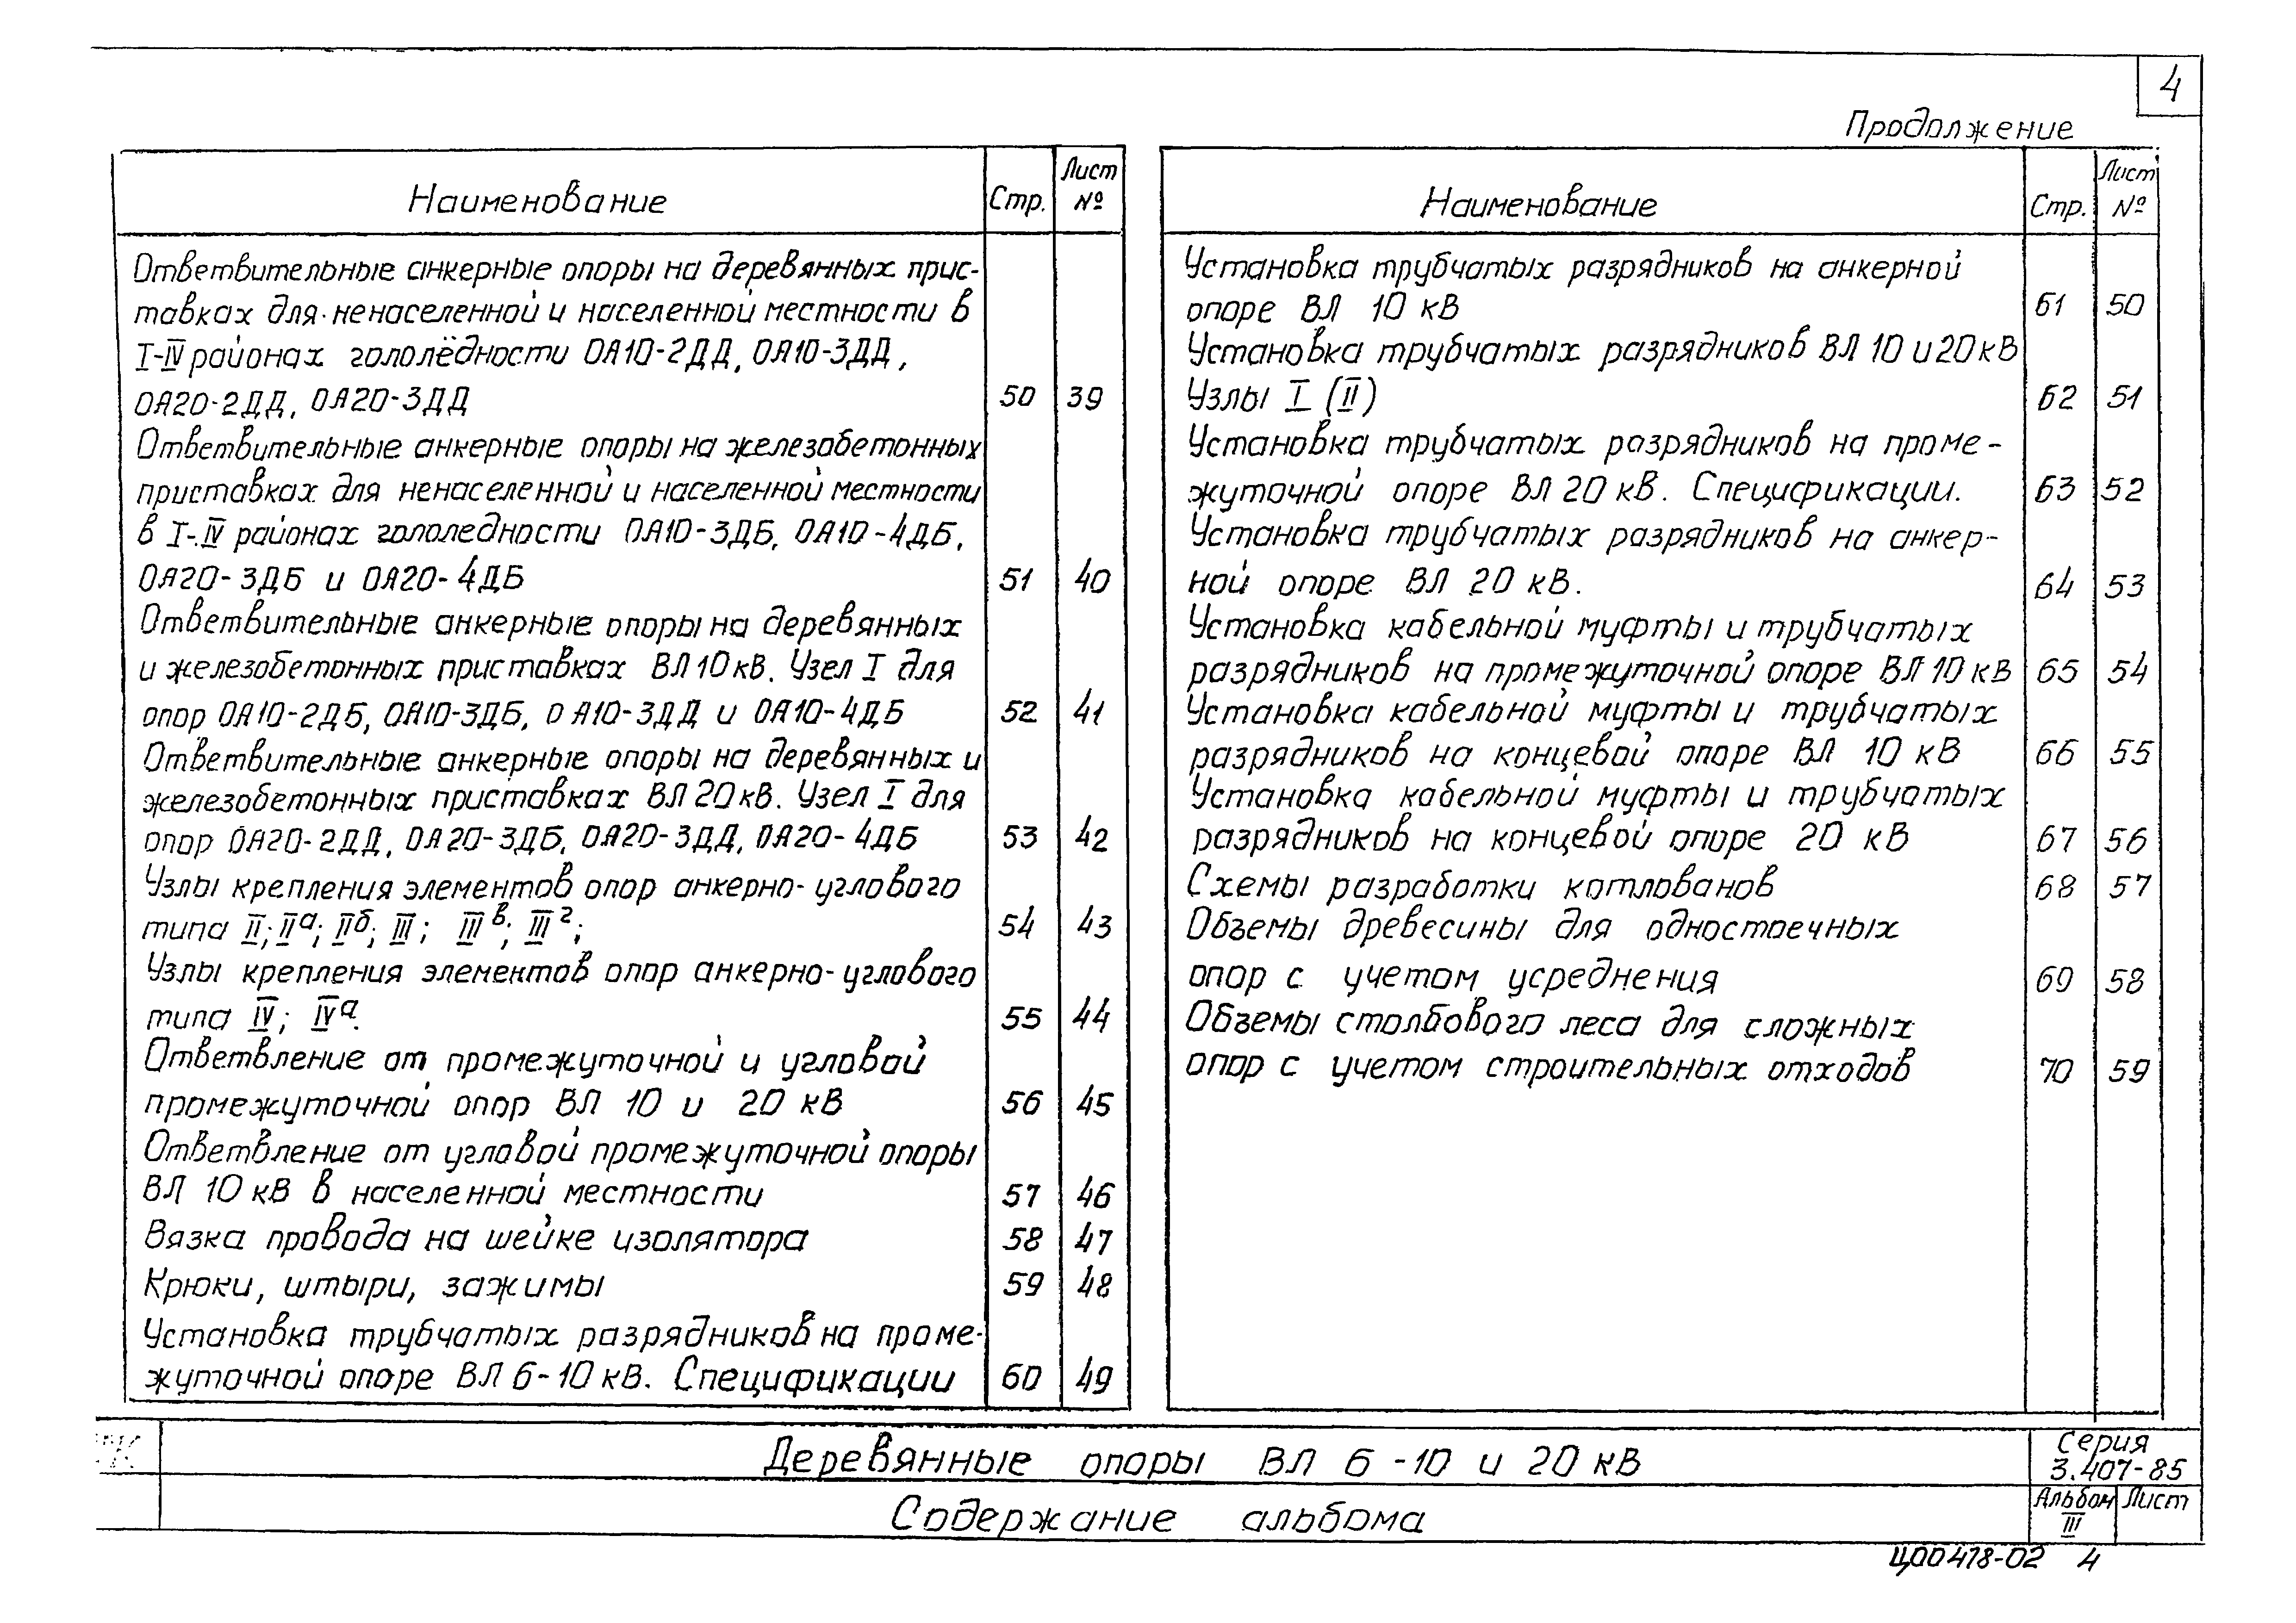 4
Продолжение
Наименование
Стр.
Лист
№
Ответвительные анкерные опоры на деревянных прис-
тавках для ненаселенной и населенной местности в
I-IV районах гололёдности ОА10-2ДД, ОА10-3ДД,
ОА20-2ДД, ОА20-3ДД 50 39
Ответвительные анкерные опоры на железобетонных
приставках для ненаселенной и населенной местности
в I-IV районах гололедности ОА10-3ДБ, ОА10-4ДБ,
ОА20-3ДБ и ОА20-4ДБ 51 40
Ответвительные анкерные опоры на деревянных
и железобетонных приставках ВЛ 10 кВ. Узел I для
опор ОА10-2ДБ, ОА10-3ДБ, ОА10-3ДД и ОА10-4ДБ 52 41
Ответвительные анкерные опоры на деревянных и
железобетонных приставках ВЛ 20 кВ. Узел I для
опор ОА20-2ДД, ОА20-3ДБ, ОА20-3ДД, ОА20-4ДБ 53 42
Узлы крепления элементов опор анкерно-углового
типа II; IIа; IIб; III; IIIв; IIIг; 54 43
Узлы крепления элементов опор анкерно-углового
типа IV; IVа. 55 44
Ответвление от промежуточной и угловой
промежуточной опор ВЛ 10 и 20 кВ 56 45
Ответвление от угловой промежуточной опоры
ВЛ 10 кВ в населенной местности 57 46
Вязка провода на шейке изолятора 58 47
Крюки, штыри, зажимы 59 48
Установка трубчатых разрядников на проме-
жуточной опоре ВЛ 6-10 кВ. Спецификации 60 49
Наименование
Стр.
Лист
№
Установка трубчатых разрядников на анкерной
опоре ВЛ 10 кВ 61 50
Установка трубчатых разрядников ВЛ 10 и 20 кВ
Узлы I (II) 62 51
Установка трубчатых разрядников на проме-
жуточной опоре ВЛ 20 кВ. Спецификации. 63 52
Установка трубчатых разрядников на анкер-
ной опоре ВЛ 20 кВ. 64 53
Установка кабельной муфты и трубчатых
разрядников на промежуточной опоре ВЛ 10 кВ 65 54
Установка кабельной муфты и трубчатых
разрядников на концевой опоре ВЛ 10 кВ 66 55
Установка кабельной муфты и трубчатых
разрядников на концевой опоре 20 кВ 67 56
Схемы разработки котлованов 68 57
Объемы древесины для одностоечных
опор с учетом усреднения 69 58
Объемы столбового леса для сложных
опор с учетом строительных отходов 70 59
Деревянные опоры ВЛ 6-10 и 20 кВ
Серия
3.407-85
Содержание альбома
Альбом
III
Лист
Ц00478-02 4